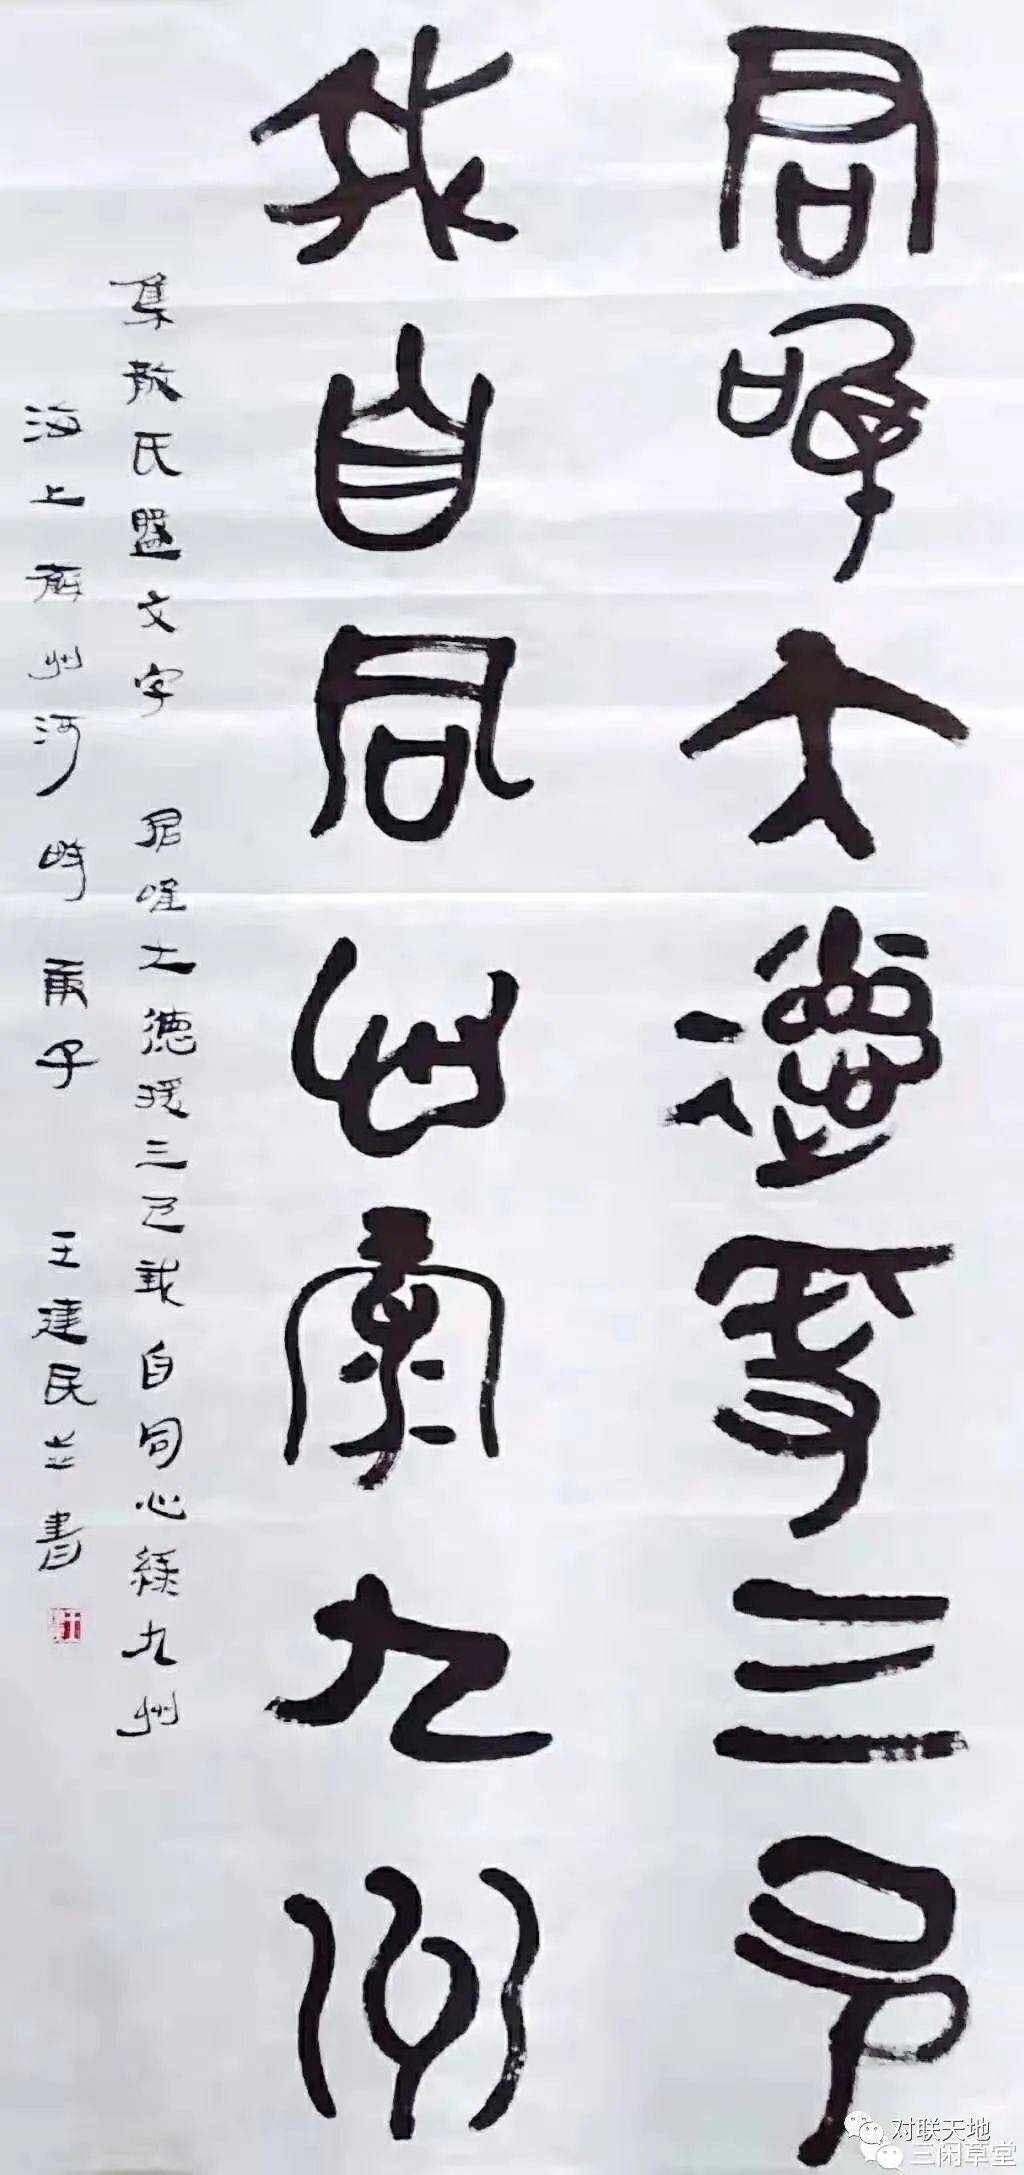 君唯大德爰三邑
我自同心绿九州
集散氏盤文字 君唯大德爰三邑我自同心绿九州
海上齊州河畔 庚子 王建民並書
对联天地
三闲草堂